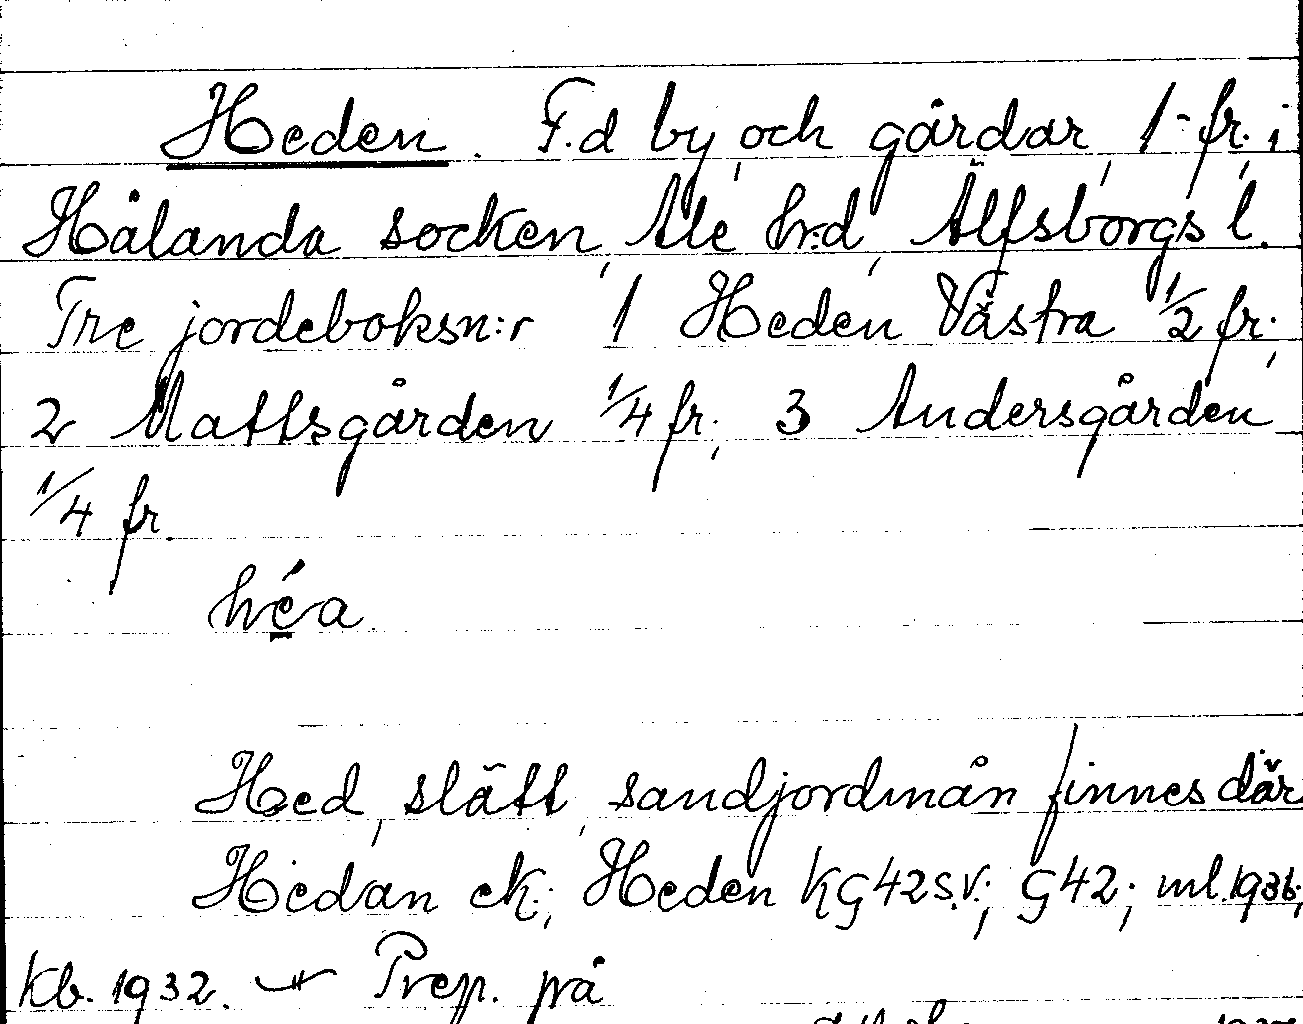 Heden. F.d by, och gårdar, 1 fr., i
Hålanda socken, Ale h:d, Älfsborgs l.
Tre jordeboksn:r 1 Heden Västra 1/2 fr.,
2 Mattsgården 1/4 fr., 3 Andersgården
1/4 fr.
héa.
Hed, slätt, sandjordmån finnes där
Hedan ek.; Heden KG42S.V.; G42; ml.1936;
Kb. 1932. Prep. på